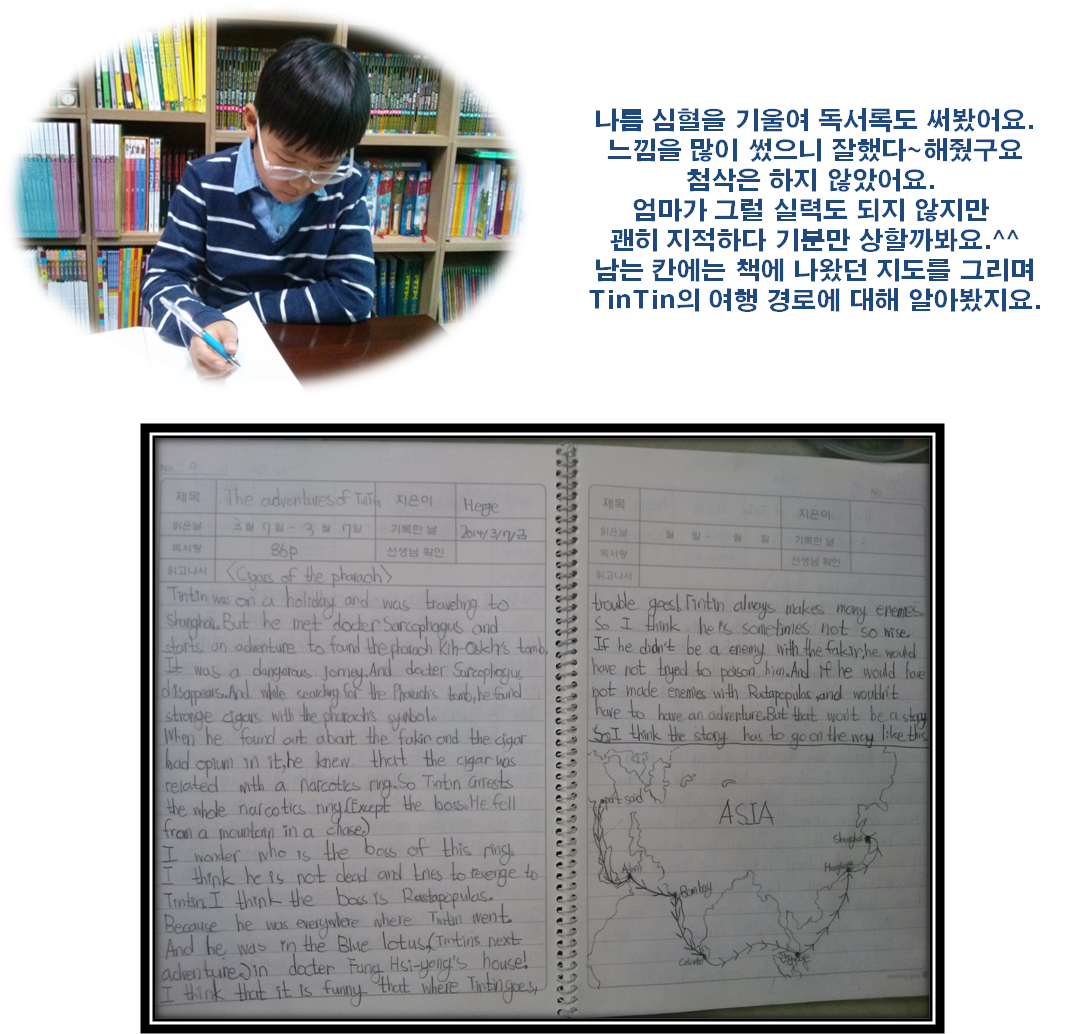 나름 심혈을 기울여 독서록도 써봤어요.
느낌을 많이 썼으니 잘했다~해줬구요
첨삭은 하지 않았어요.
엄마가 그럴 실력도 되지 않지만
괜히 지적하다 기분만 상할까봐요.^^
남는 칸에는 책에 나왔던 지도를 그리며
TinTin의 여행 경로에 대해 알아봤지요.
No. 9
제목 The adventures of TinTin 지은이 Herge
읽은날 3월 7일 - 3월 7일 기록한 날 2014/3/7/금
독서량 86p 선생님 확인
읽고나서 <Cigars of the pharaoh>
Tintin was on a holiday and was traveling to
Shanghai. But he met docter Sarcophagus and
starts an adventure to found the pharaoh Kih-Oskh's tomb.
It was a dangerous jorney. And docter Sarcophagus
disappears. And while searching for the Pharaoh's tomb, he found
strange cigars with the pharaoh's symbol.
When he found out about the fakir and the cigar
had opium in it, he knew that the cigar was
related with a narcotics ring. So Tintin arrests
the whole narcotics ring (Except the boss. He fell
from a mountain in a chase.)
I wonder who is the boss of this ring.
I think he is not dead and tries to revenge to
Tintin. I think the boss is Rastapopulas.
Because he was everywhere where Tintin went.
And he was in the Blue lotus, (Tintins next
adventure.) in docter Fang Hsi-yeng's house!
I think that it is funny that where Tintin goes,
No.
제목 지은이
읽은날 월 일 - 월 일 기록한 날
독서량 선생님 확인
읽고나서
trouble goes! Tintin always makes many enemies.
So I think he is sometimes not so wise.
If he didn't be a enemy with the fakir, he would
have not tryed to poison him. And if he would have
not made enemies with Rastapopular, and wouldn't
have to have an adventure. But that won't be a story
So I think the story has to go on the way like this.
port said
ASIA
Shanghai
Aden
Hongkong
Bombay
Colombo